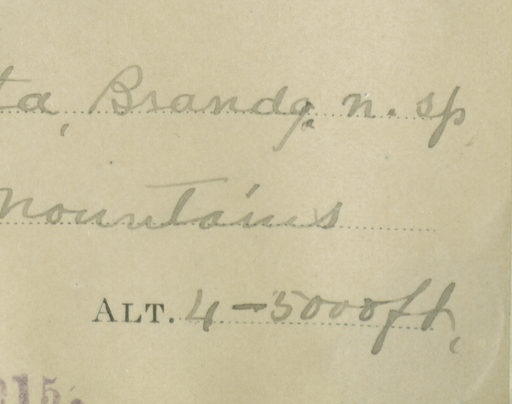 ta, Brandg. n. sp.
Mountains
ALT. 4-5000 ft,
215.